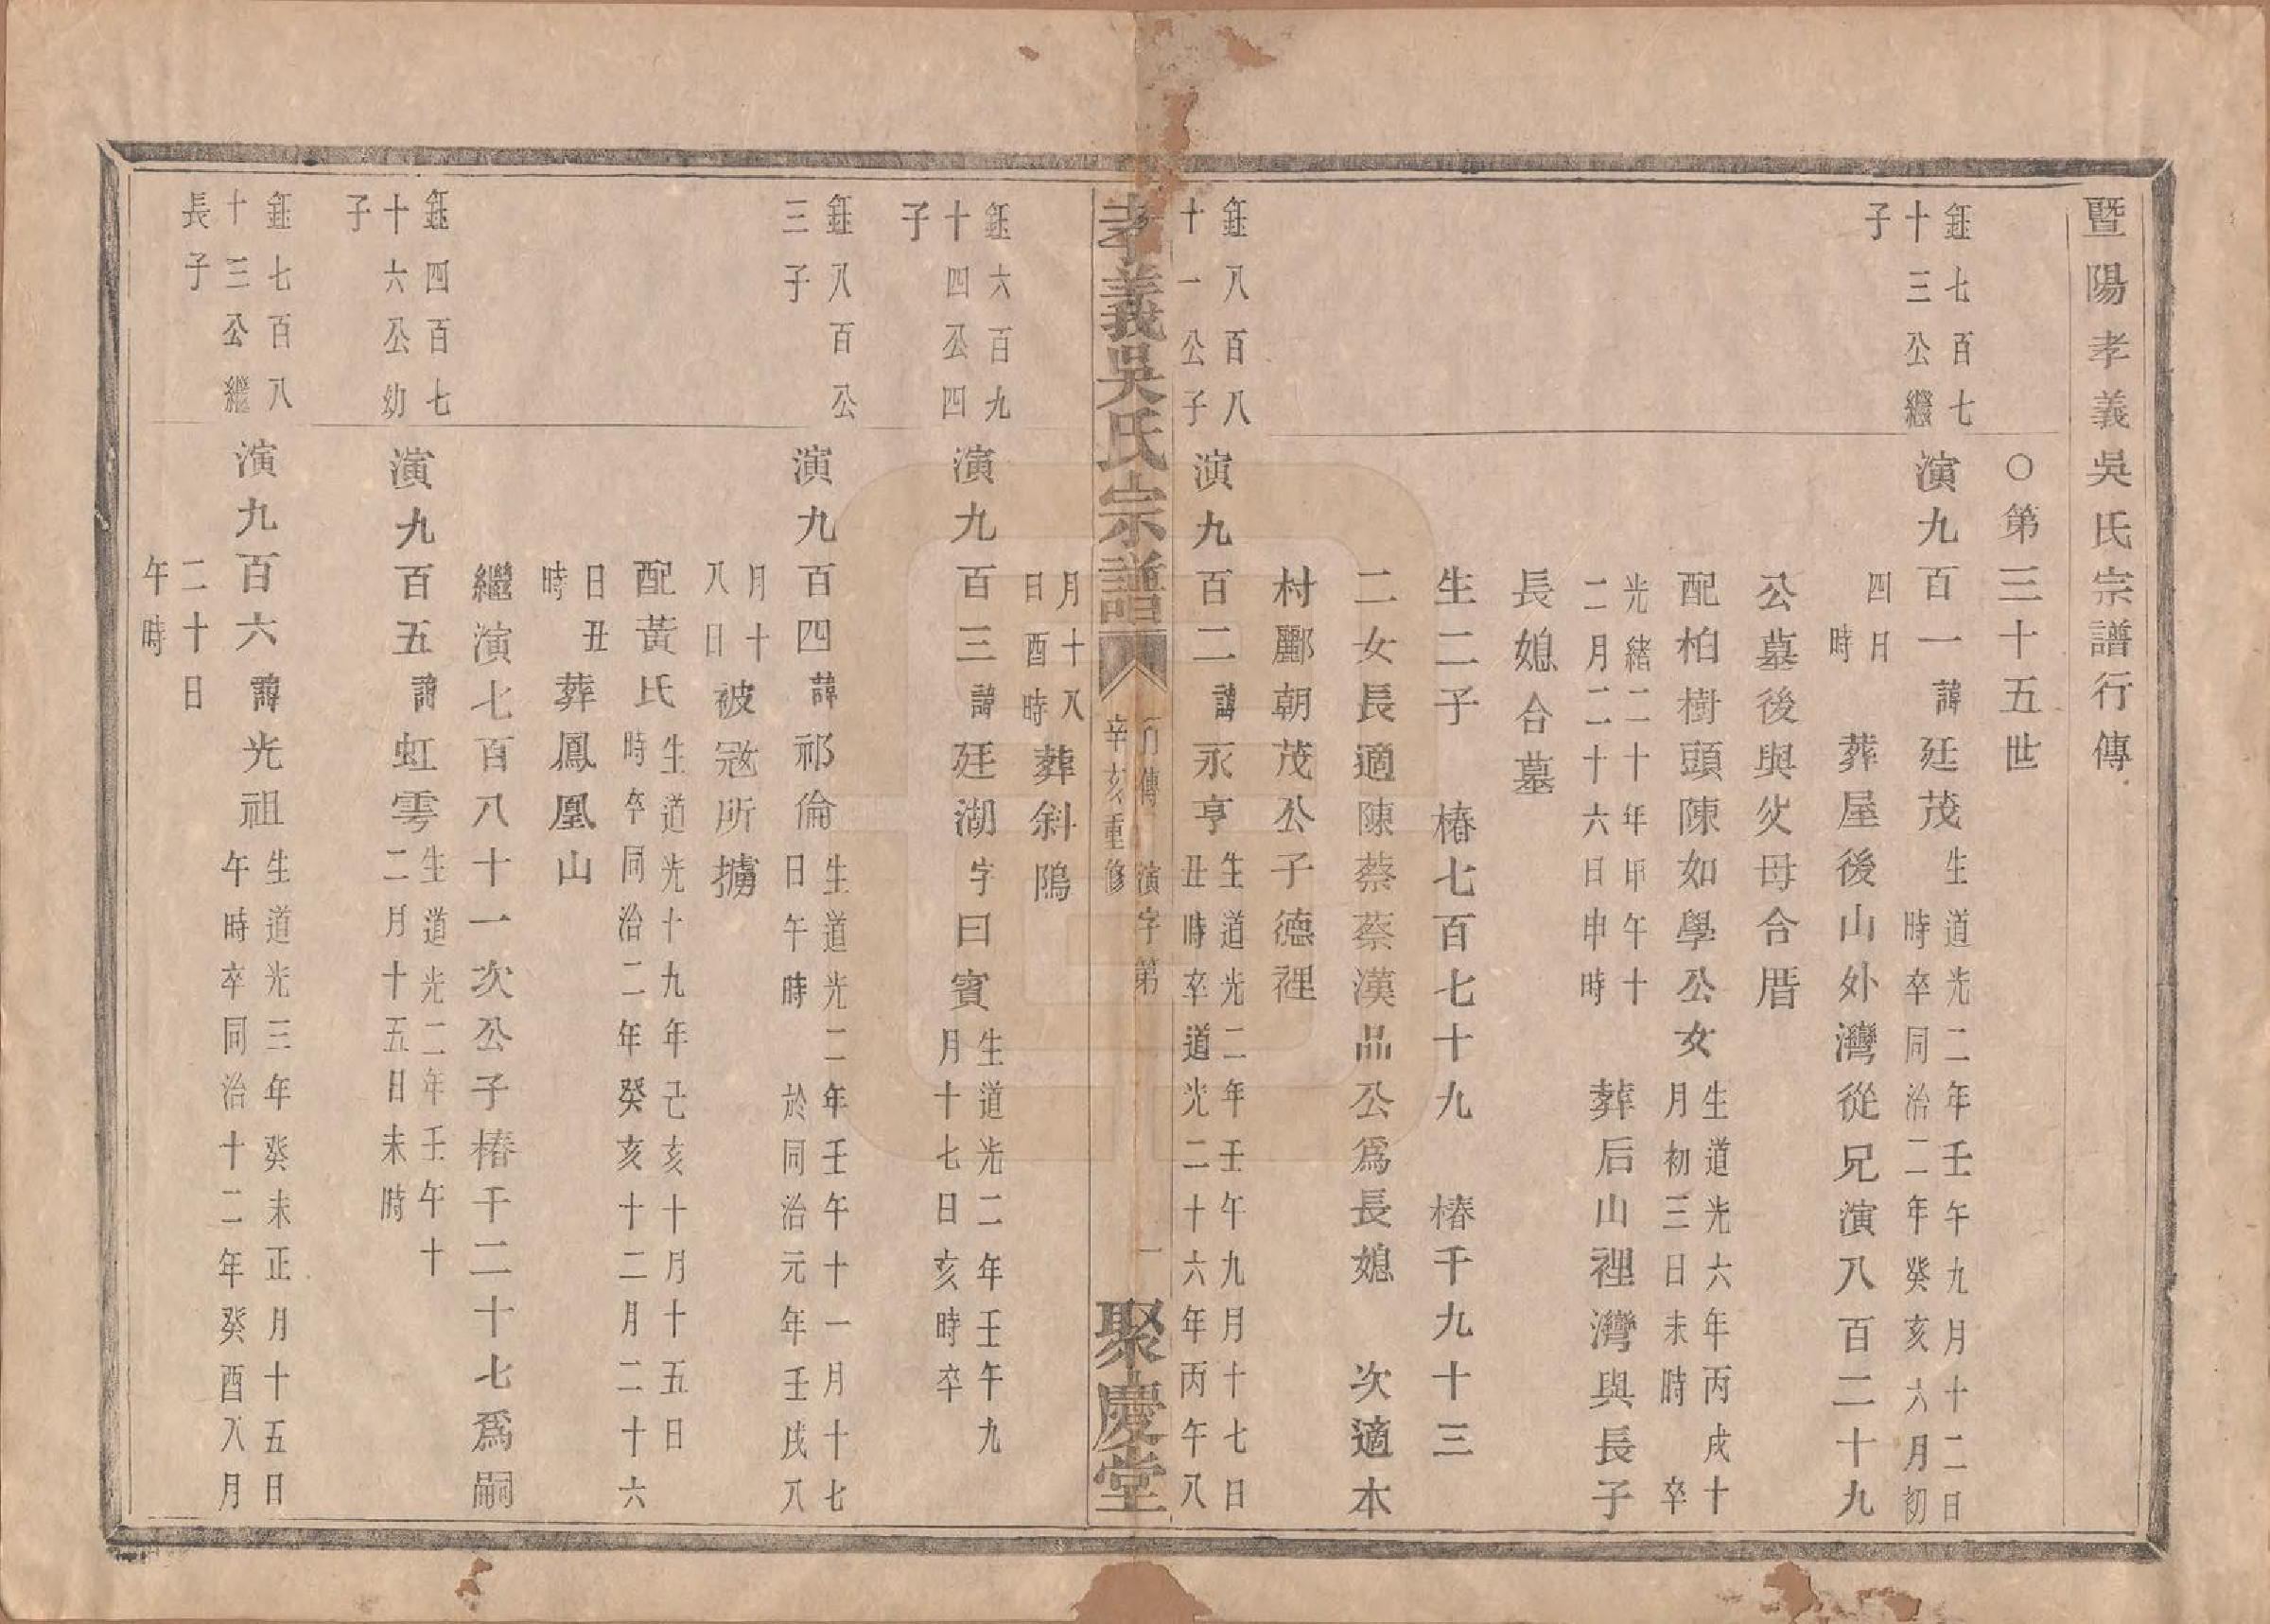 暨陽孝義吳氏宗譜行傳
○第三十五世
鈺七百七
十三公繼
子
演九百一諱廷茂
生道光二年壬午九月十二日
時卒同治二年癸亥六月初
四日
時
葬屋後山外灣從兄演八百二十九
公墓後與父母合厝
配柏樹頭陳如學公女
生道光六年丙戌十
月初三日未時卒
光緒二十年甲午十
二月二十六日申時
葬后山裡灣與長子
長媳合墓
生二子 椿七百七十九 椿千九十三
二女長適陳蔡蔡漢品公爲長媳 次適本
村酈朝茂公子德裡
鈺八百八
十一公子
演九百二諱永亨
生道光二年壬午九月十七日
丑時卒道光二十六年丙午八
月十八
日酉時
葬斜隝
孝義吳氏宗譜
行傳 演字第 一
辛亥重修
聚慶堂
鈺六百九
十四公四
子
演九百三諱廷湖字曰賓
生道光二年壬午九
月十七日亥時卒
鈺八百公
三子
演九百四諱祁倫
生道光二年壬午十一月十七
日午時 於同治元年壬戌八
月十
八日
被寇所擄
配黃氏
生道光十九年己亥十月十五日
時卒同治二年癸亥十二月二十六
日丑
時
葬鳳凰山
繼演七百八十一次公子椿千二十七爲嗣
鈺四百七
十六公幼
子
演九百五諱虹雩
生道光二年壬午十
二月十五日未時
鈺七百八
十三公繼
長子
演九百六諱光祖
生道光三年癸未正月十五日
午時卒同治十二年癸酉八月
二十日
午時